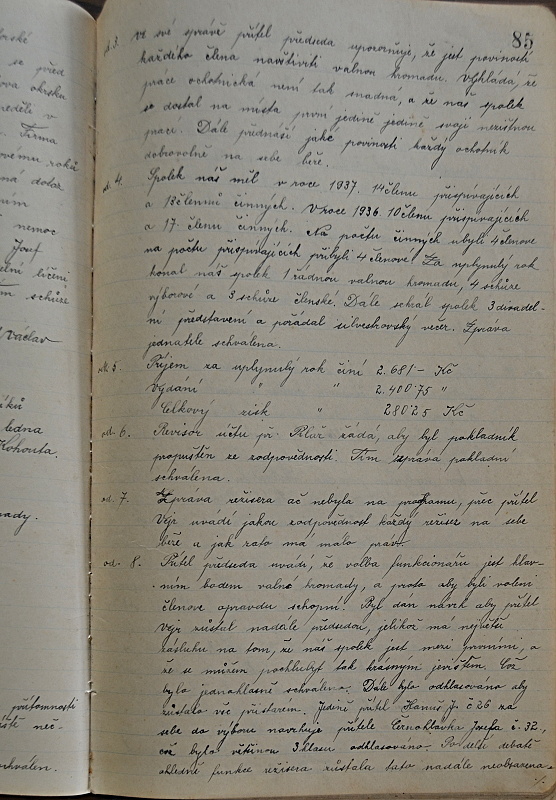 85
od. 3. Ve své správě přítel předseda upozorňuje, že jest povinností
každého člena navštívit valnou hromadu. Vykládá, že
práce ochotnická není tak snadná, a že náš spolek
se dostal na místa první jedině jedině svojí nezištnou
prací. Dále přednáší jaké povinosti každý ochotník
dobrovolně na sebe bere.
od. 4. Spolek náš měl v roce 1937. 14 členu přispívajících
a 13 členmů činných. V roce 1936. 10 členu přispívajících
a 17. členu činných. Na počtu činných ubyli 4 členove
na počtu přispívajících přibyli 4 členove. Za uplynulý rok
konal náš spolek 1 řádnou valnou hromadu, 4 schůze
výborové a 3 schůze členské. Dále sehrál spolek 3 divadel-
ní představení a pořádal silvestrovský večer. Zpráva
jednatele schvalena.
od. 5. Příjem za uplynulý rok činí 2.681 - Kč
Vydání " " 2.400·75 "
Celkový zisk " 280·25 Kč
od. 6. Revisor účtu př. žádá, aby byl pokladník
propuštěn ze zodpovědnosti. Tím zpráva pokladní
schválena.
od. 7. Zpráva režisera ač nebyla na programu, přec přítel
Vejr uvádí jakou zodpovědnost každý režiser na sebe
béře a jak zato má málo práv.
od. 8. Přítel předseda uvádí, že volba funkcionářu jest hlav-
ním bodem valné hromady, a proto aby byli voleni
členove opravdu schopní. Byl dán návrh aby přítel
Vejr zůstal nadále předsedou, jelikož má největší
zásluhu na tom, že náš spolek jest mezi prvními, a
že se můžem pochlubit tak krásným jevištěm. Což
bylo jednohlasně schváleno. Dále bylo odhlasováno aby
zůstalo vše při starém. Jedině přítel Hanuš J. č 26 za
sebe do výboru navrhuje přítele Černohlávka Josefa č. 32,
což bylo většinou 3 hlasu odhlasováno. Po delší debatě
ohledně funkce režisera zůstala tato nadále neobsazena.